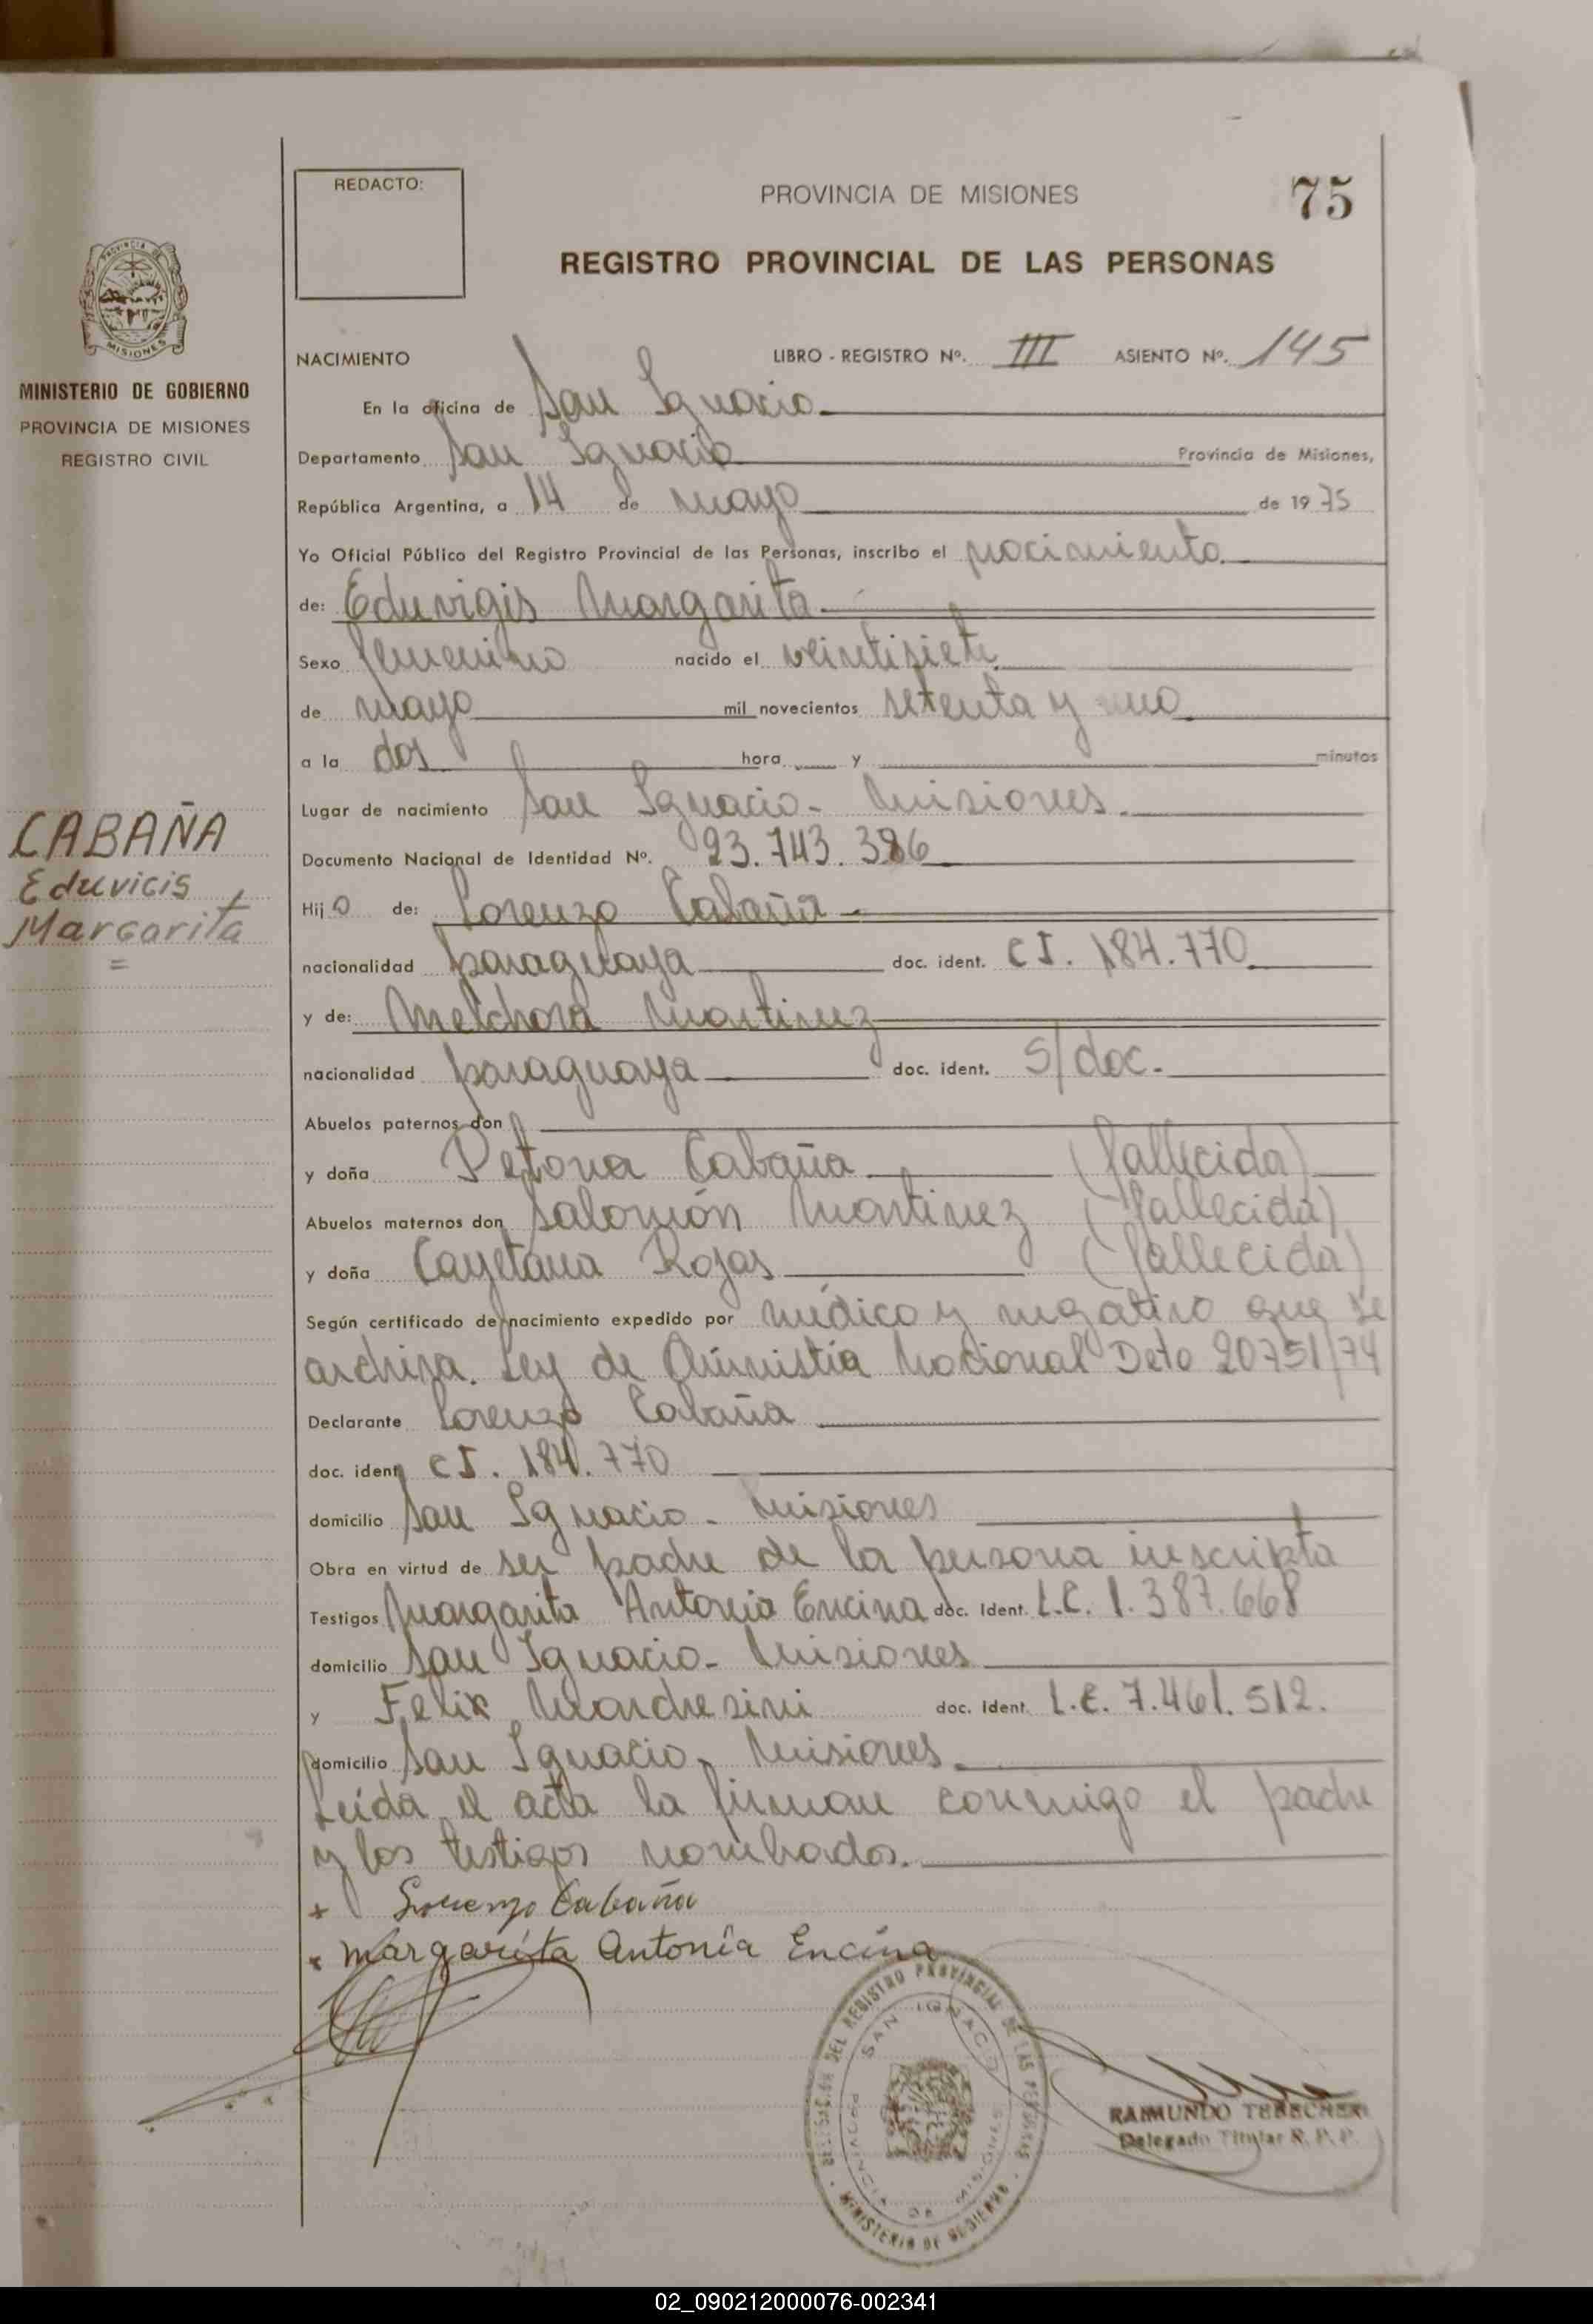 REDACTO:
PROVINCIA DE MISIONES
75
REGISTRO PROVINCIAL DE LAS PERSONAS
MISIONES
MINISTERIO DE GOBIERNO
PROVINCIA DE MISIONES
REGISTRO CIVIL
NACIMIENTO LIBRO - REGISTRO Nº. III ASIENTO Nº. 145
En la oficina de San Ignacio
Departamento San Ignacio Provincia de Misiones,
República Argentina, a 14 de mayo de 1975
Yo Oficial Público del Registro Provincial de las Personas, inscribo el nacimiento
de: Eduvigis Margarita
Sexo femenino nacido el veintisiete
de mayo mil novecientos setenta y uno
a la dos hora y minutos
Lugar de nacimiento San Ignacio - Misiones
CABAÑA
Eduvicis
Margarita
Documento Nacional de Identidad Nº. 23.743.386
Hija de: Lorenzo Cabaña
nacionalidad paraguaya doc. ident. CI. 184.770
y de: Melchora Martinez
nacionalidad paraguaya doc. ident. S/doc.
Abuelos paternos don
y doña Petona Cabaña (fallecida)
Abuelos maternos don Salomón Martinez (fallecida)
y doña Cayetana Rojas (fallecida)
Según certificado de nacimiento expedido por médico y negativo que se
archiva. Ley de Amnistía Nacional Dcto 20751/74
Declarante Lorenzo Cabaña
doc. ident. CI. 184.770
domicilio San Ignacio - Misiones
Obra en virtud de ser padre de la persona inscripta
Testigos Margarita Antonia Encina doc. Ident. L.C. 1.387.668
domicilio San Ignacio - Misiones
y Felix Marchesini doc. Ident. L.E. 7.461.512.
domicilio San Ignacio - Misiones
Leída el acta la firman conmigo el padre
y los testigos nombrados.
Lorenzo Cabaña
Margarita Antonia Encina
DEL REGISTRO PROVINCIAL DE LAS PERSONAS
SAN IGNACIO
PROVINCIA DE MISIONES
MINISTERIO DE GOBIERNO
RAIMUNDO
Delegado Titular R. P. P.
02_090212000076-002341